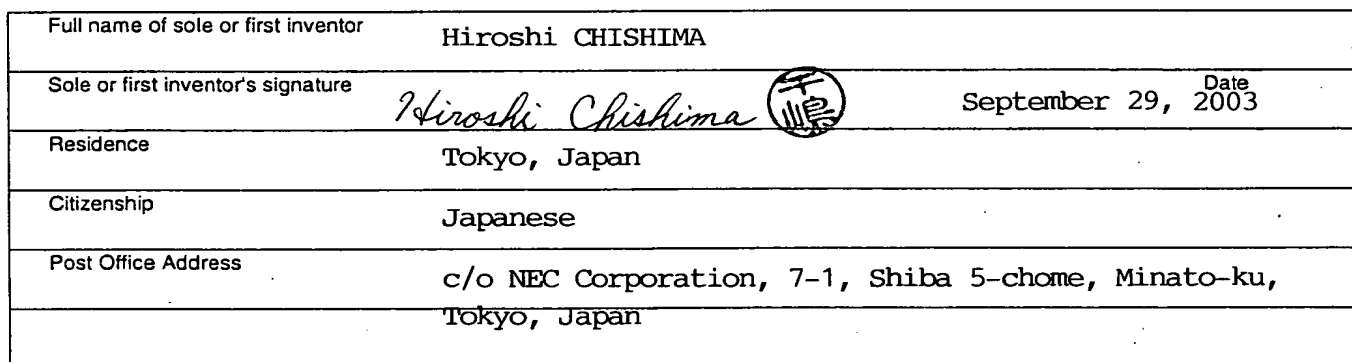 Full name of sole or first inventor Hiroshi CHISHIMA
Sole or first inventor's signature Hiroshi Chishima 千嶋 September 29, 2003 Date
Residence Tokyo, Japan
Citizenship Japanese
Post Office Address c/o NEC Corporation, 7-1, Shiba 5-chome, Minato-ku,
Tokyo, Japan